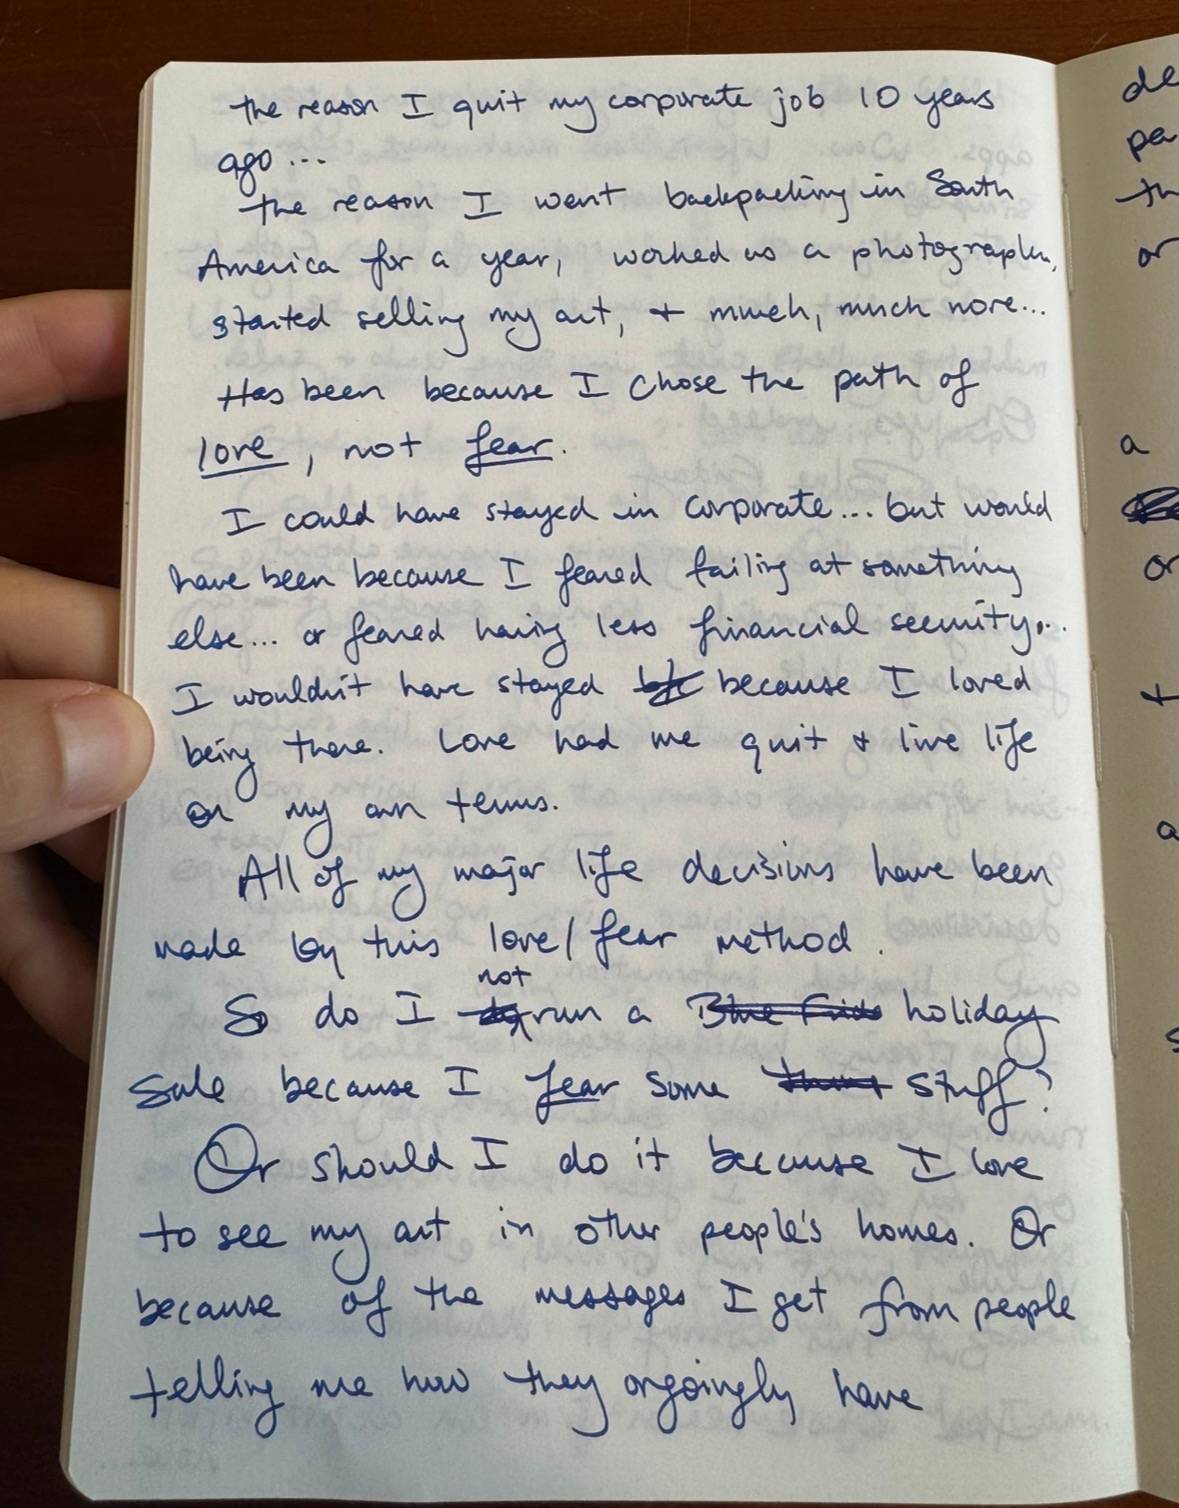 the reason I quit my corporate job 10 years
ago...
the reason I went backpacking in South
America for a year, worked as a photographer,
started selling my art, + much, much more...
Has been because I chose the path of
love, not fear.
I could have stayed in corporate... but would
have been because I feared failing at something
else... or feared having less financial security...
I wouldn't have stayed b/c because I loved
being there. Love had me quit + live life
on my own terms.
All of my major life decisions have been
made by this love/fear method.
not
So do I run a Blue Frida holiday
sale because I fear some stuff?
Or should I do it because I love
to see my art in other people's homes. Or
because of the messages I get from people
telling me how they ongoingly have
de
pa
th
or
a
or
+
a
s